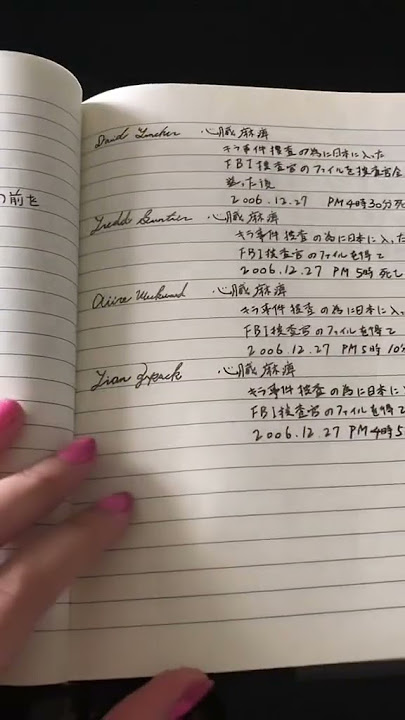 の前を
心臓麻痺
キラ事件捜査の為に日本に入った
FBI捜査官のファイルを捜査官全
2006.12.27 PM4時30分死
心臓麻痺
キラ事件捜査の為に日本に入った
FBI捜査官のファイルを得て
2006.12.27 PM5時 死亡
心臓麻痺
キラ事件捜査の為に日本に入っ
FBI捜査官のファイルを得て
2006.12.27 PM5時10
Lian Zapack 心臓麻痺
キラ事件捜査の為に日本に
FBI捜査官のファイルを得て
2006.12.27 PM4時5